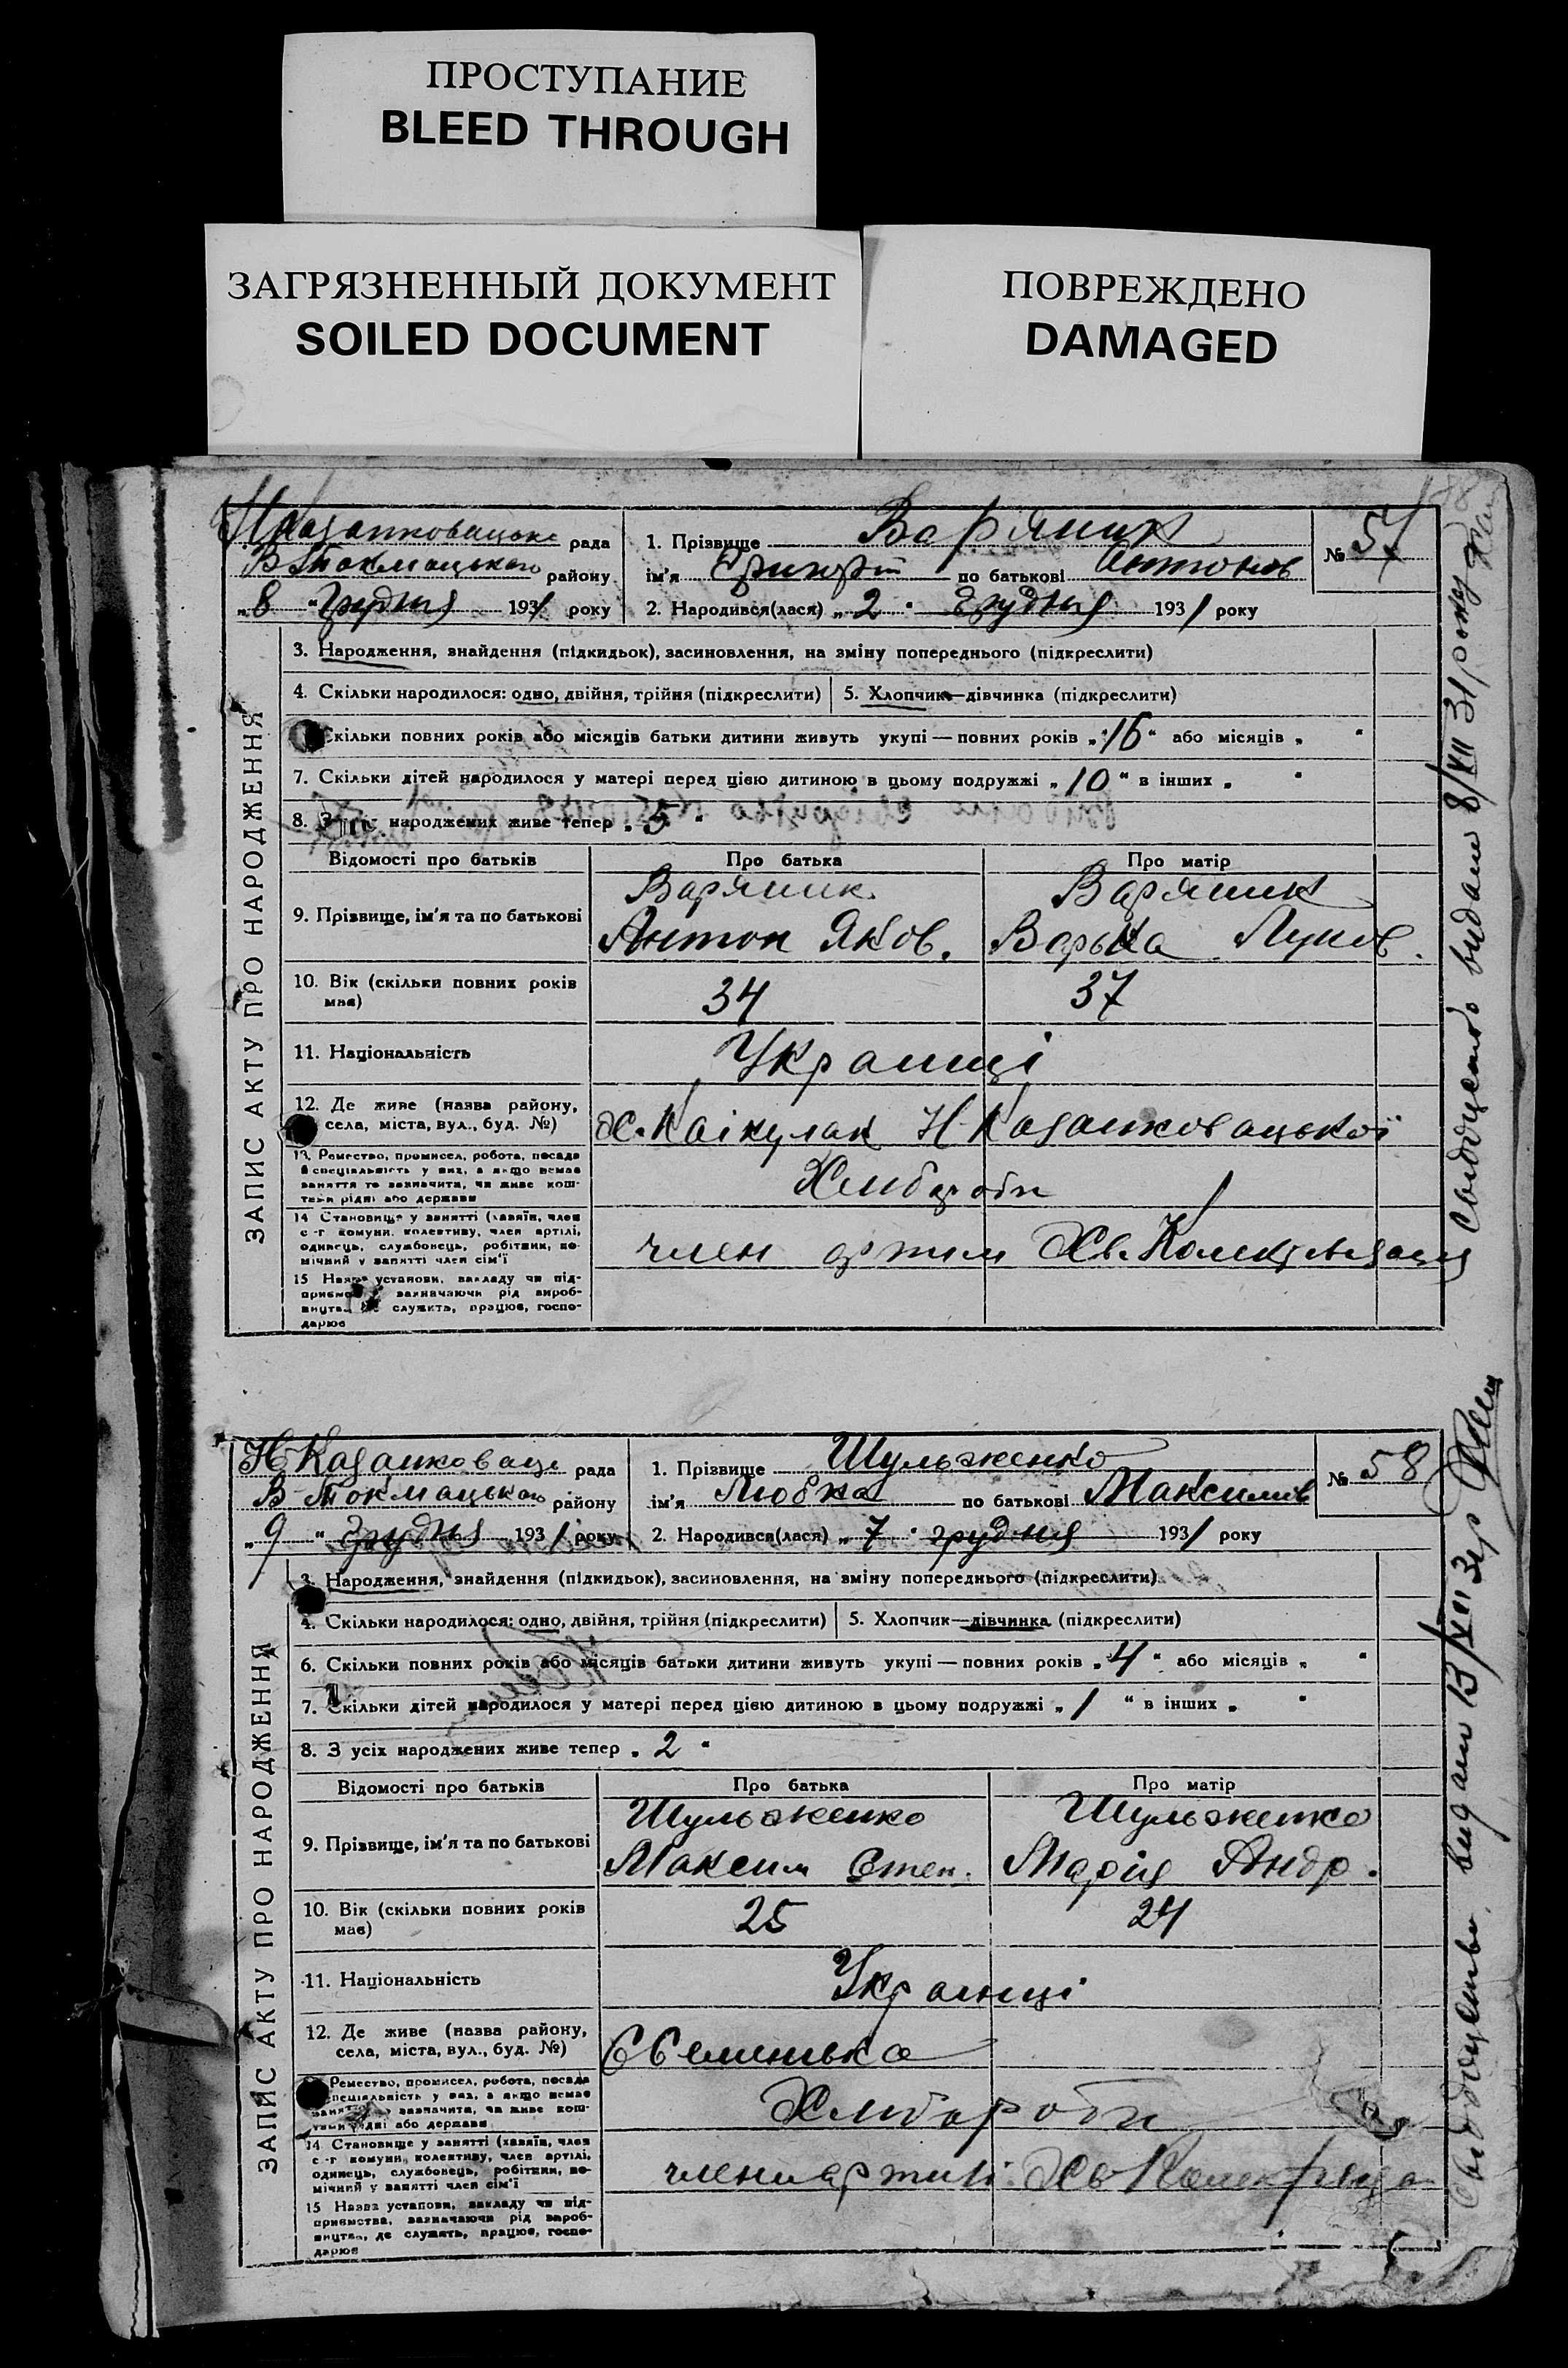 ПРОСТУПАНИЕ
BLEED THROUGH
ЗАГРЯЗНЕННЫЙ ДОКУМЕНТ
SOILED DOCUMENT
ПОВРЕЖДЕНО
DAMAGED
188
рада
В-Токмацького району
„8" грудня 1931 року
1. Прізвище Варяник
ім'я Григорій по батькові Антонов
2. Народився(лася) „2" грудня 1931 року
№ 57
ЗАПИС АКТУ ПРО НАРОДЖЕННЯ
3. Народження, знайдення (підкидьок), засиновлення, на зміну попереднього (підкреслити)
4. Скільки народилося: одно, двійня, трійня (підкреслити) 5. Хлопчик—дівчинка (підкреслити)
Скільки повних років або місяців батьки дитини живуть укупі — повних років „16" або місяців „ "
7. Скільки дітей народилося у матері перед цією дитиною в цьому подружжі „10" в інших „ "
8. З народжених живе тепер „5"
Відомості про батьків Про батька Про матір
9. Прізвище, ім'я та по батькові
Варяник Антон Яков.
Варяник Варька Луков.
10. Вік (скільки повних років має) 34 37
11. Національність Українці
12. Де живе (назва району, села, міста, вул., буд. №) х. Каікулак Н-Казанковацької
13. Ремество, промисел, робота, посада й спеціяльність у них, а якщо немає заняття то зазначити, чи живе коштами рідні або держави Хлибороби
14 Становище у занятті (хазяїн, член с.-г комуни, колективу, член артілі, одинець, службовець, робітник, помічний у занятті член сім'ї член артили
15 Назва установи, закладу чи підприємства, зазначаючи рід виробництва, де служить, працює, господарює
Свидоцтво видат 8/XII 31 року
Н-Казанковаць рада
В-Токмацького району
„9" грудня 1931 року
1. Прізвище Шульженко
ім'я Любка по батькові Максимів
2. Народився(лася) „7" грудня 1931 року
№ 58
ЗАПИС АКТУ ПРО НАРОДЖЕННЯ
3. Народження, знайдення (підкидьок), засиновлення, на зміну попереднього (підкреслити)
4. Скільки народилося: одно, двійня, трійня (підкреслити) 5. Хлопчик—дівчинка (підкреслити)
6. Скільки повних років або місяців батьки дитини живуть укупі — повних років „4" або місяців „ "
7. Скільки дітей народилося у матері перед цією дитиною в цьому подружжі „1" в інших „ "
8. З усіх народжених живе тепер „2"
Відомості про батьків Про батька Про матір
9. Прізвище, ім'я та по батькові
Шульженко Максим Степ.
Шульженко Марія Андр.
10. Вік (скільки повних років має) 25 24
11. Національність Українці
12. Де живе (назва району, села, міста, вул., буд. №)
Ремество, промисел, робота, посада спеціяльність у них, а якщо немає зазначити, чи живе рідні або держави Хлибороби
14 Становище у занятті (хазяїн, член с.-г комуни, колективу, член артілі, одинець, службовець, робітник, помічний у занятті член сім'ї члени артилі
15 Назва установи, закладу чи підприємства, зазначаючи рід виробництва, де служить, працює, господарює
Свидоцтво видат 13/XII 31р